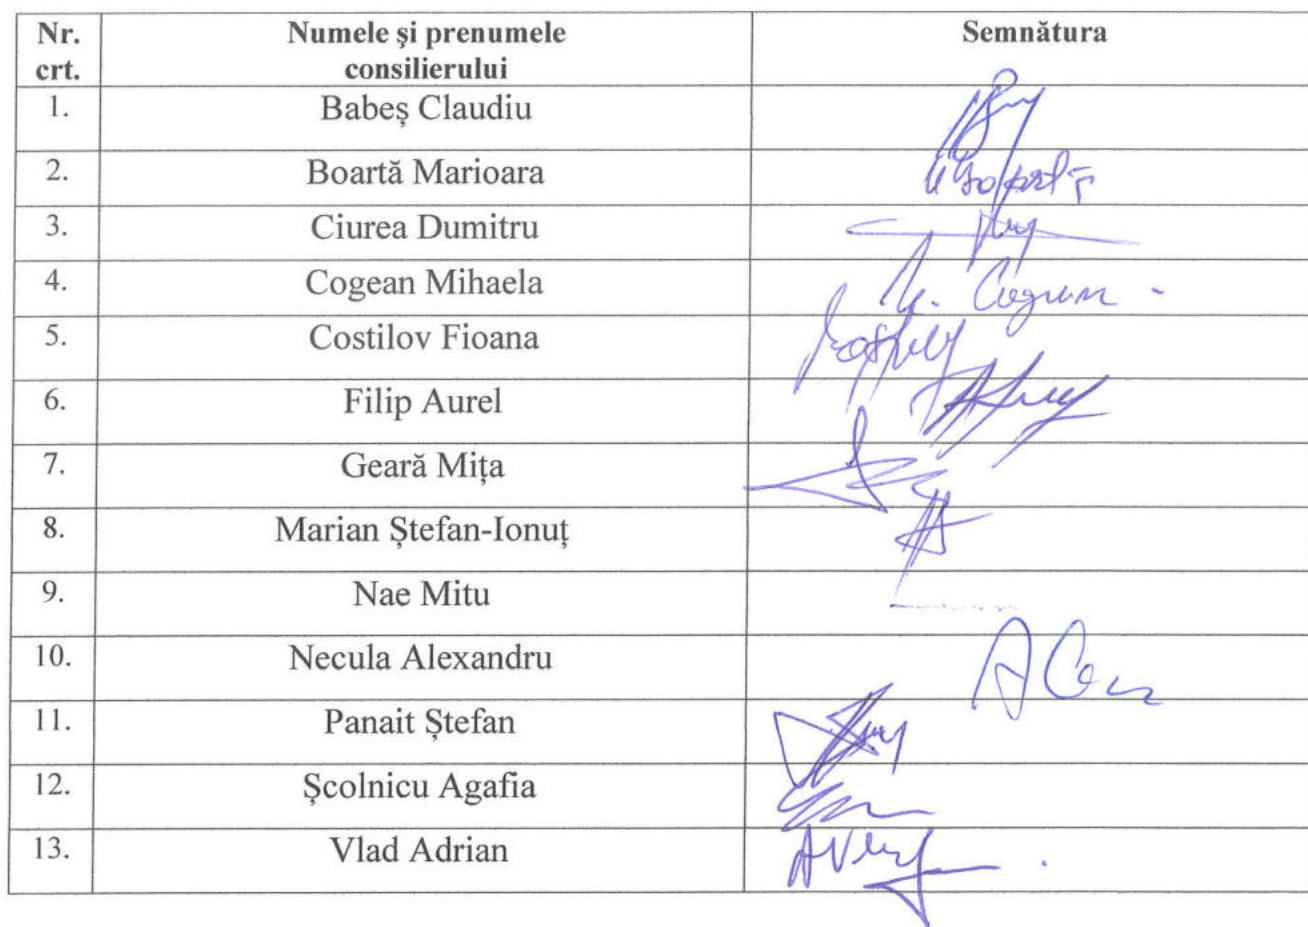 Nr. crt. Numele și prenumele consilierului Semnătura
1. Babeș Claudiu
2. Boartă Marioara
3. Ciurea Dumitru
4. Cogean Mihaela
5. Costilov Fioana
6. Filip Aurel
7. Geară Mița
8. Marian Ștefan-Ionuț
9. Nae Mitu
10. Necula Alexandru
11. Panait Ștefan
12. Școlnicu Agafia
13. Vlad Adrian